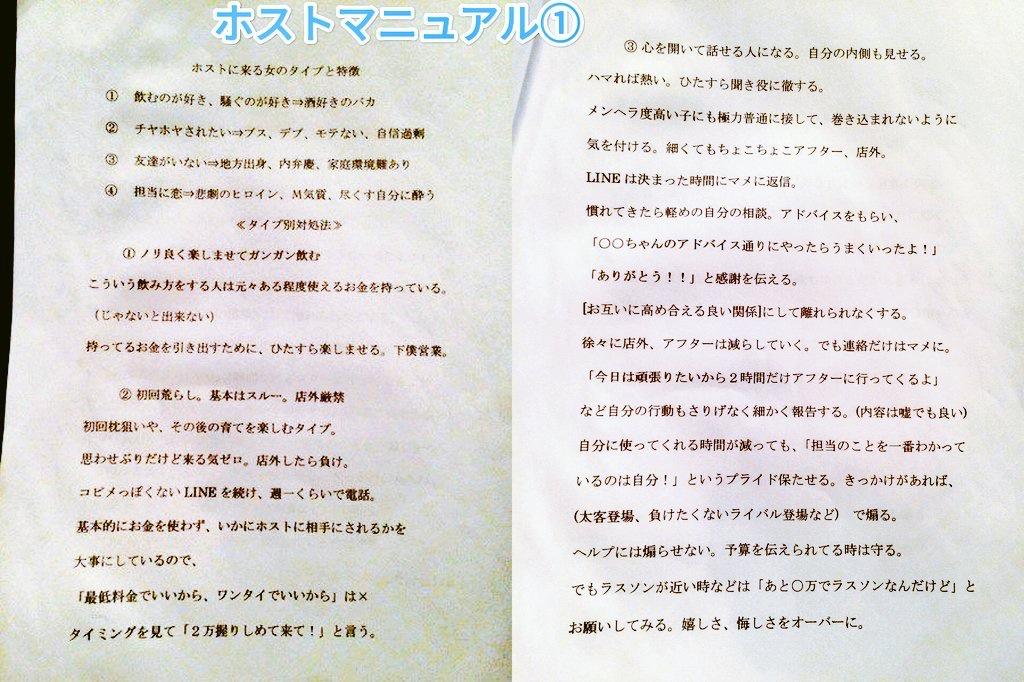 ホストマニュアル①
ホストに来る女のタイプと特徴
① 飲むのが好き、騒ぐのが好き⇒酒好きのバカ
② チヤホヤされたい⇒ブス、デブ、モテない、自信過剰
③ 友達がいない⇒地方出身、内弁慶、家庭環境難あり
④ 担当に恋⇒悲劇のヒロイン、M気質、尽くす自分に酔う
≪タイプ別対処法≫
① ノリ良く楽しませてガンガン飲む
こういう飲み方をする人は元々ある程度使えるお金を持っている。
（じゃないと出来ない）
持ってるお金を引き出すために、ひたすら楽しませる。下僕営業。
② 初回荒らし。基本はスルー。店外厳禁
初回枕狙いや、その後の育てを楽しむタイプ。
思わせぶりだけど来る気ゼロ。店外したら負け。
コピメっぽくない LINE を続け、週一くらいで電話。
基本的にお金を使わず、いかにホストに相手にされるかを
大事にしているので、
「最低料金でいいから、ワンタイでいいから」は×
タイミングを見て「２万握りしめて来て！」と言う。
③ 心を開いて話せる人になる。自分の内側も見せる。
ハマれば熱い。ひたすら聞き役に徹する。
メンヘラ度高い子にも極力普通に接して、巻き込まれないように
気を付ける。細くてもちょこちょこアフター、店外。
LINE は決まった時間にマメに返信。
慣れてきたら軽めの自分の相談。アドバイスをもらい、
「〇〇ちゃんのアドバイス通りにやったらうまくいったよ！」
「ありがとう！！」と感謝を伝える。
[お互いに高め合える良い関係]にして離れられなくする。
徐々に店外、アフターは減らしていく。でも連絡だけはマメに。
「今日は頑張りたいから２時間だけアフターに行ってくるよ」
など自分の行動もさりげなく細かく報告する。(内容は嘘でも良い)
自分に使ってくれる時間が減っても、「担当のことを一番わかって
いるのは自分！」というプライド保たせる。きっかけがあれば、
(太客登場、負けたくないライバル登場など) で煽る。
ヘルプには煽らせない。予算を伝えられてる時は守る。
でもラスソンが近い時などは「あと〇万でラスソンなんだけど」と
お願いしてみる。嬉しさ、悔しさをオーバーに。